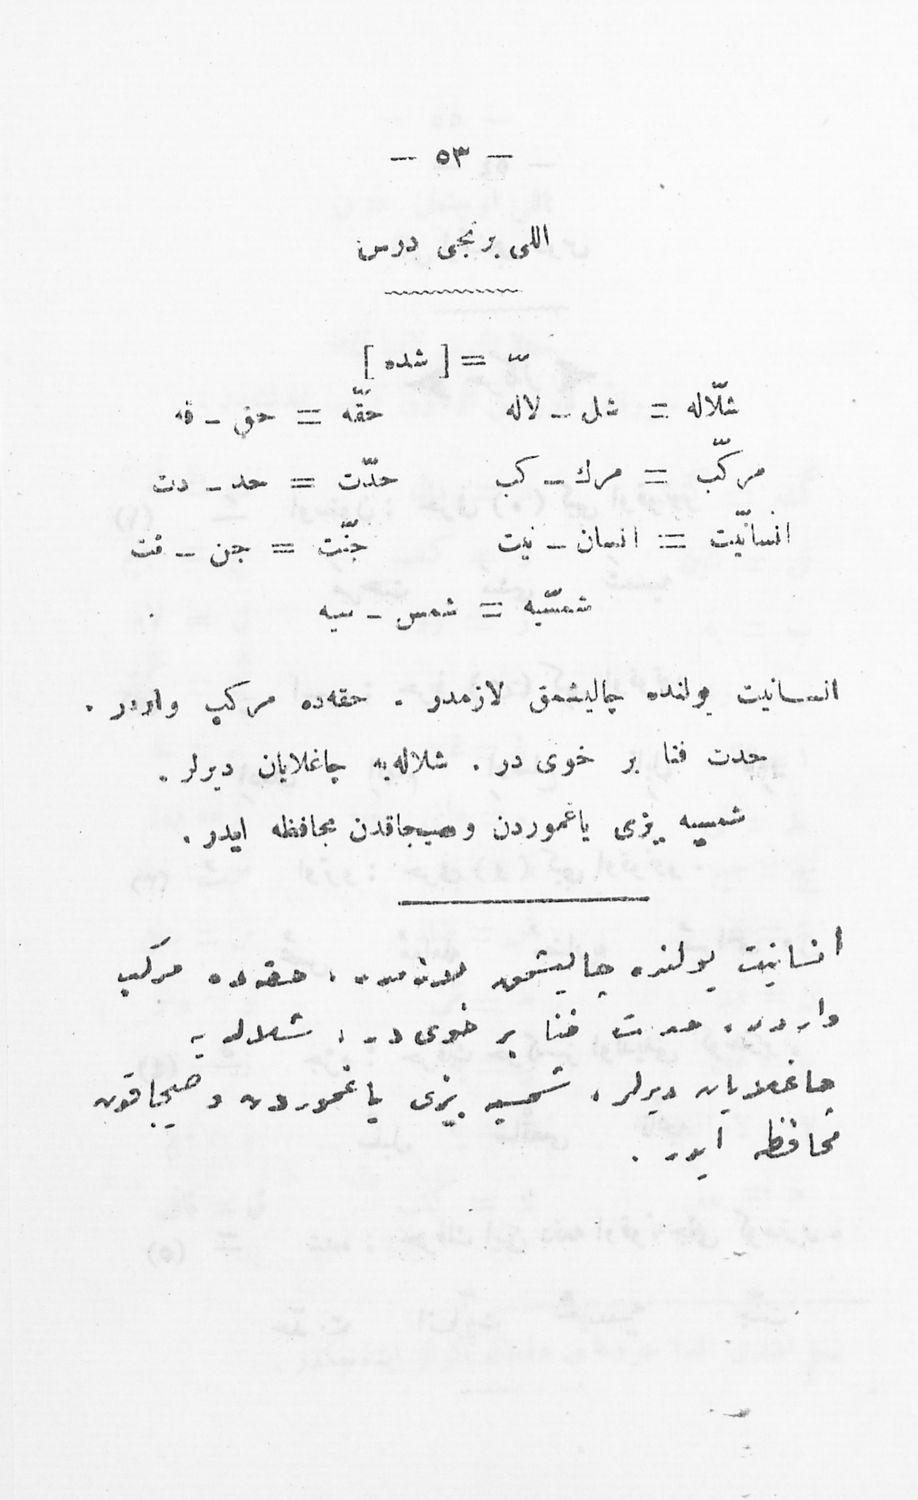 — ٥٣ —
اللی برنجی درس
ـّ = [ شده ]
شلّاله = شل ـ لاله حقّه = حق ـ قه
مركّب = مرك ـ كب حدّت = حد ـ دت
انسانیّت = انسان ـ نیت جنّت = جن ـ نت
شمسّیه = شمس ـ سیه
انسانیت یولنده چالیشمق لازمدر . حقه‌ده مركب واردر .
حدت فنا بر خوی در . شلاله‌یه چاغلایان دیرلر .
شمسیه بزی یاغموردن و صیجاقدن محافظه ایدر .
انسانیت یولنده چالیشمق لازمدر . حقه‌ده مركب
واردر . حدت فنا بر خوی در . شلاله یه
چاغلایان دیرلر . شمسیه بزی یاغموردن و صیجاقدن
محافظه ایدر .